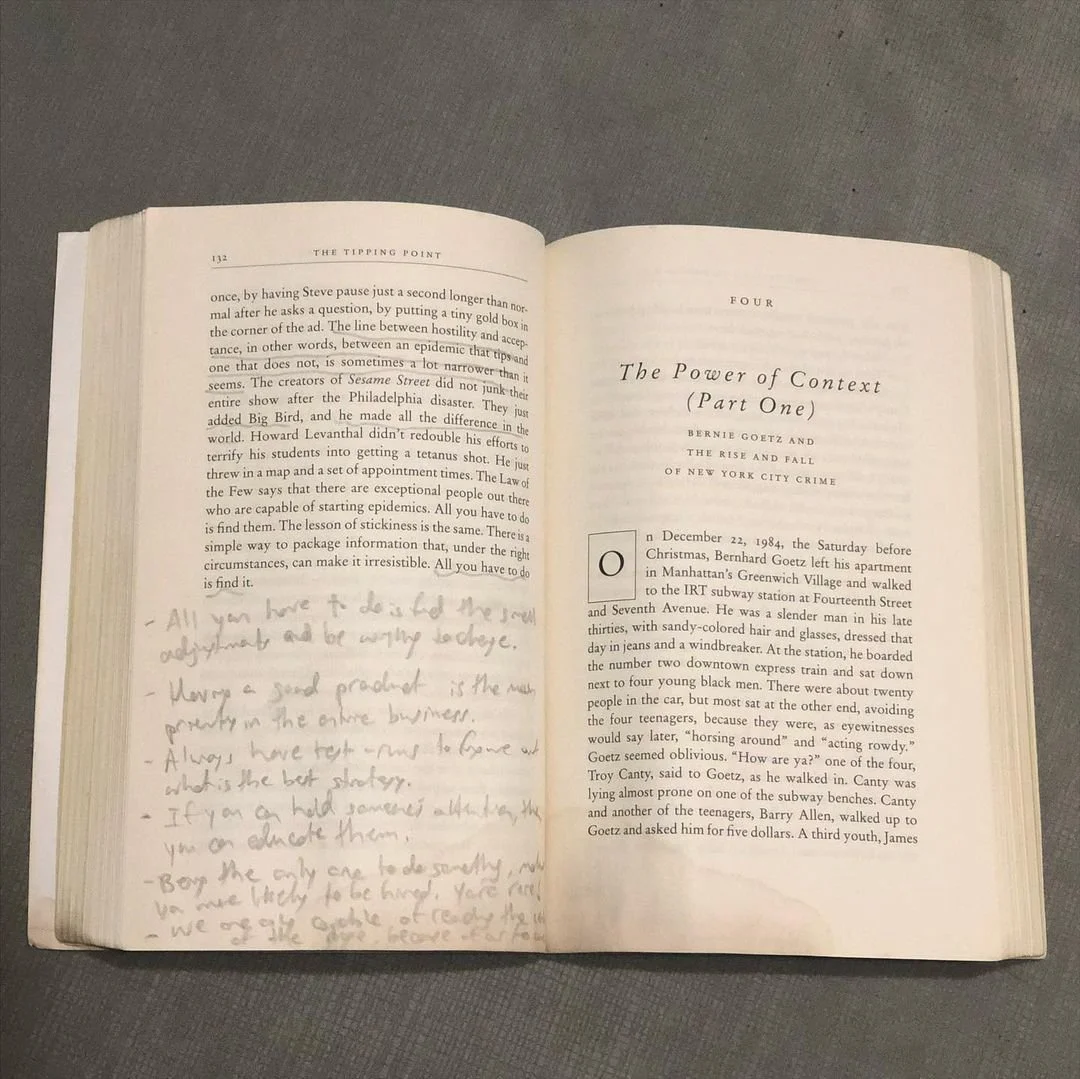 132
THE TIPPING POINT
once, by having Steve pause just a second longer than nor-
mal after he asks a question, by putting a tiny gold box in
the corner of the ad. The line between hostility and accep-
tance, in other words, between an epidemic that tips and
one that does not, is sometimes a lot narrower than it
seems. The creators of Sesame Street did not junk their
entire show after the Philadelphia disaster. They just
added Big Bird, and he made all the difference in the
world. Howard Levanthal didn't redouble his efforts to
terrify his students into getting a tetanus shot. He just
threw in a map and a set of appointment times. The Law of
the Few says that there are exceptional people out there
who are capable of starting epidemics. All you have to do
is find them. The lesson of stickiness is the same. There is a
simple way to package information that, under the right
circumstances, can make it irresistible. All you have to do
is find it.
- All you have to do is find the small
adjustments and be willing to change.
- Having a good product is the main
priority in the entire business.
- Always have test-runs to figure out
what is the best strategy.
- If you can hold someone's attention, then
you can educate them.
- Being the only one to do something, makes
you more likely to be hired. You're rare.
- we are only capable of the
of the because
FOUR
The Power of Context
(Part One)
BERNIE GOETZ AND
THE RISE AND FALL
OF NEW YORK CITY CRIME
On December 22, 1984, the Saturday before
Christmas, Bernhard Goetz left his apartment
in Manhattan's Greenwich Village and walked
to the IRT subway station at Fourteenth Street
and Seventh Avenue. He was a slender man in his late
thirties, with sandy-colored hair and glasses, dressed that
day in jeans and a windbreaker. At the station, he boarded
the number two downtown express train and sat down
next to four young black men. There were about twenty
people in the car, but most sat at the other end, avoiding
the four teenagers, because they were, as eyewitnesses
would say later, "horsing around" and "acting rowdy."
Goetz seemed oblivious. "How are ya?" one of the four,
Troy Canty, said to Goetz, as he walked in. Canty was
lying almost prone on one of the subway benches. Canty
and another of the teenagers, Barry Allen, walked up to
Goetz and asked him for five dollars. A third youth, James